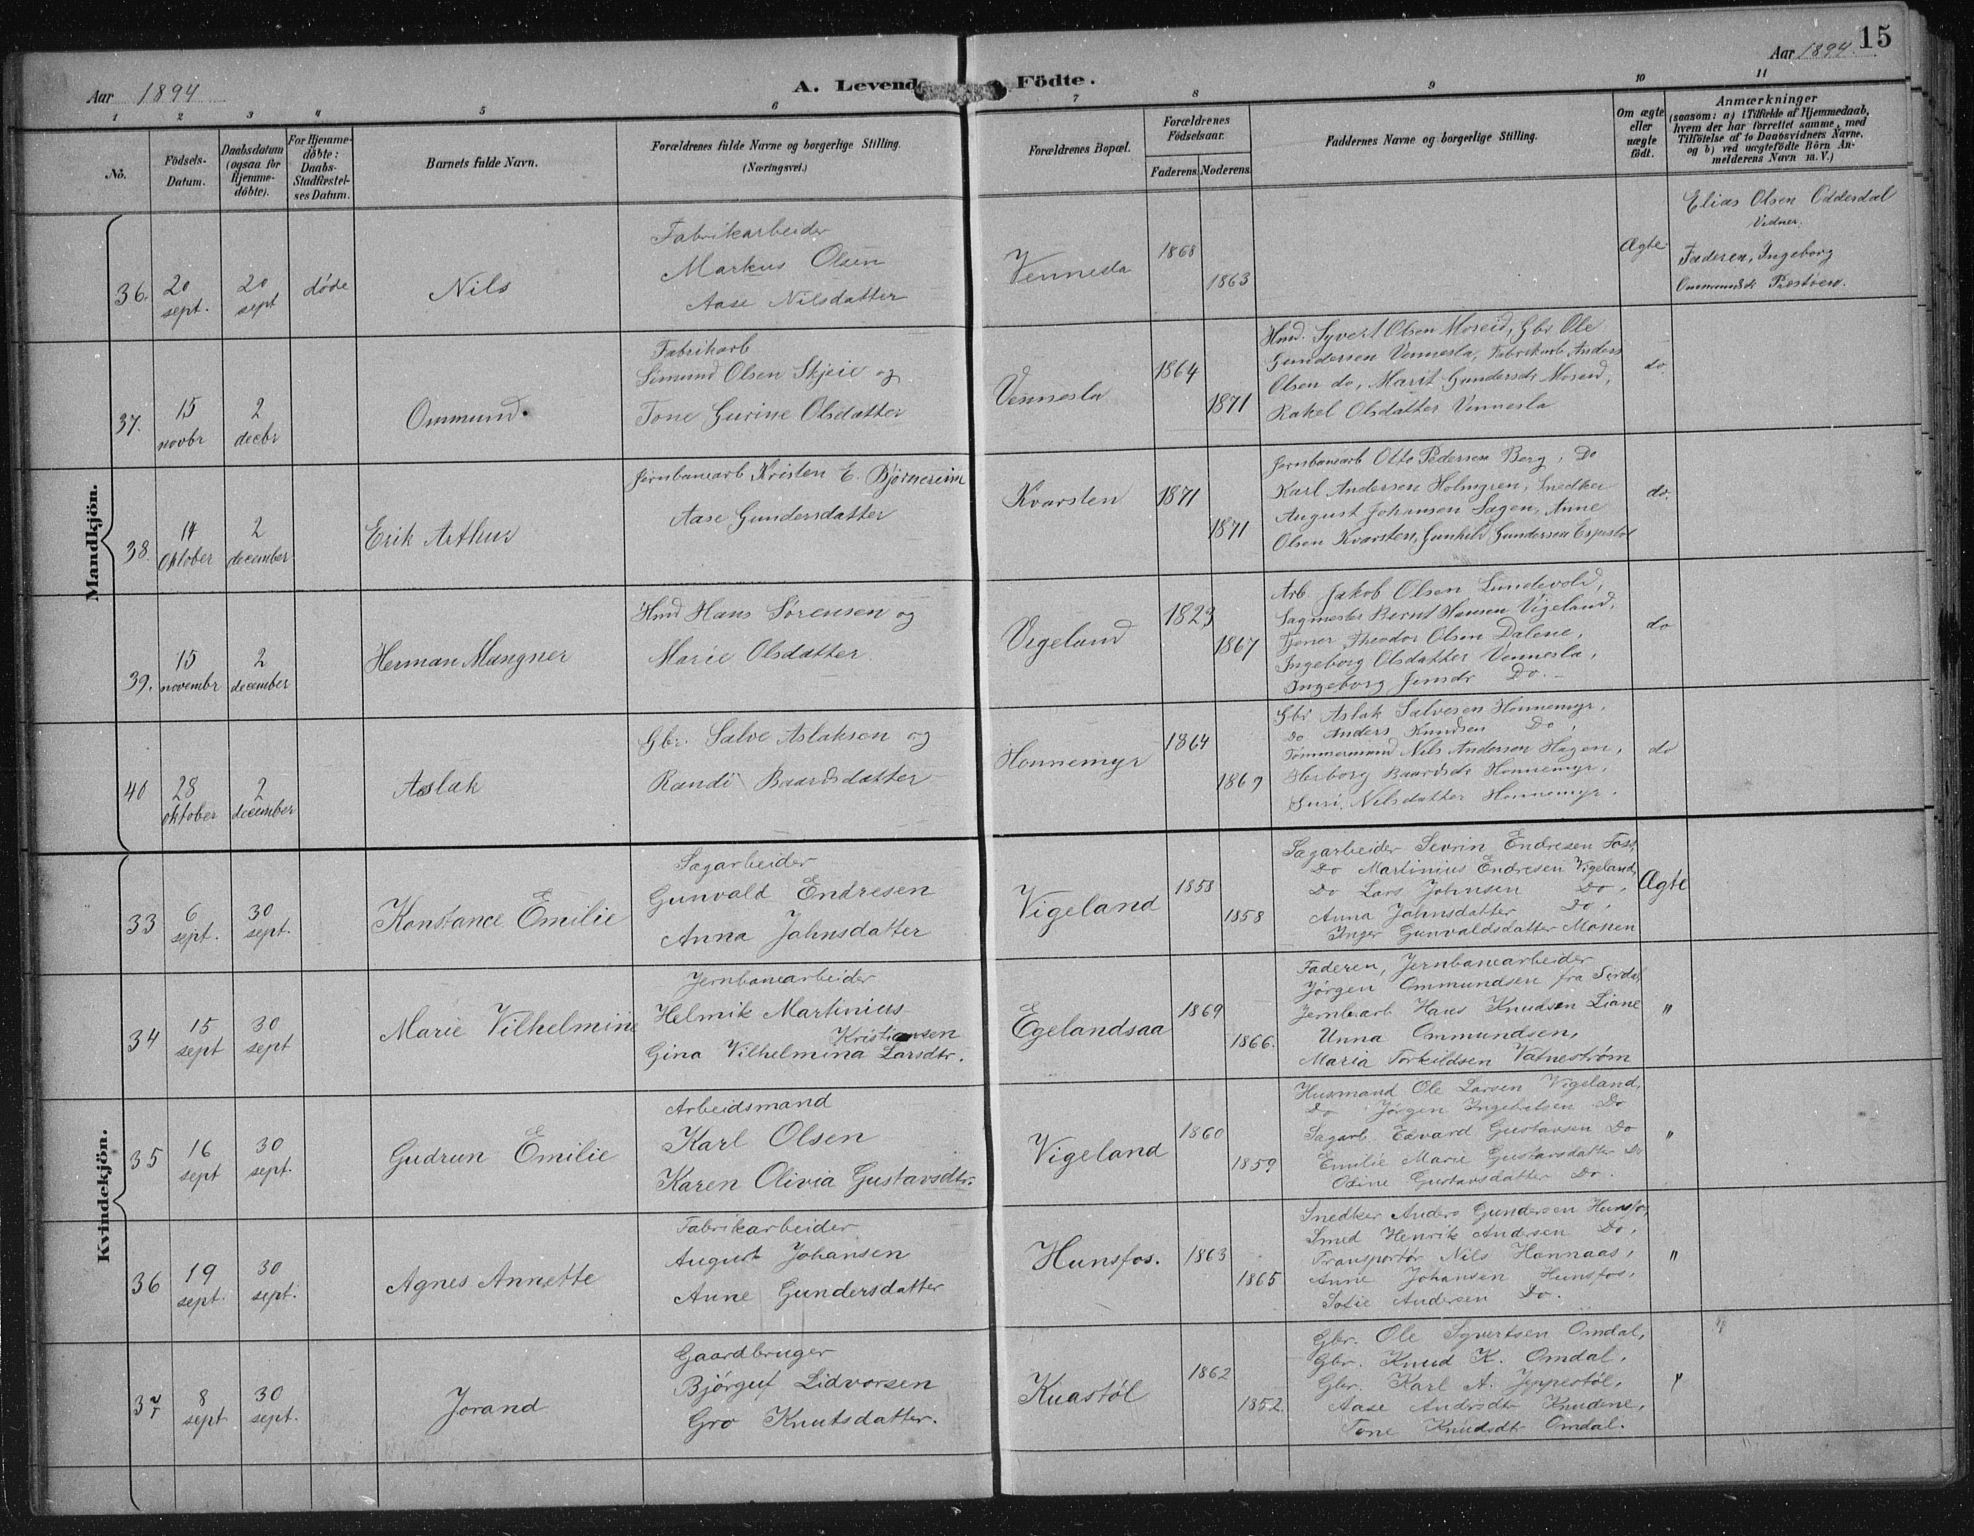 Aar 1894
A. Levende Födte.
Aar 1894. 15
1 2 3 4 5 6 7 8 9 10 11
No.
Födsels-Datum.
Daabsdatum (ogsaa för Hjemme-döbte).
For Hjemme-döbte: Daabs-Stadfæstel-ses Datum.
Barnets fulde Navn.
Forældrenes fulde Navne og borgerlige Stilling. (Næringsvei.)
Forældrenes Bopæl.
Forældrenes Födselsaar.
Faderens. Moderens.
Faddernes Navne og borgerlige Stilling.
Om ægte eller uægte födt.
Anmærkninger
(saasom: a) i Tilfælde af Hjemmedaab, hvem der har forrettet samme, med Tilföielse af to Daabsvidners Navne. og b) ved uægtefödte Börn An-melderens Navn m. V.)
Mandkjön.
36. 20 sept. 20 sept døde Nils
Fabrikarbeider
Markus Olsen
Aase Nilsdatter
Vennesla 1868 1863 Ægte
Elias Olsen Odderdal
Vidner.
Faderen, Ingeborg
37. 15 novbr 2 decbr Ommund.
Fabrikarb
Simund Olsen Skjeie og
Tone Gurine Olsdatter
Vennesla 1864 1871
Hmd. Syvert Olsen Moseid, Gbr Ole
Gundersen Vennesla, Fabrikarb Anders
Olsen do, Marit Gundersdr Moseid,
Rakel Olsdatter Vennesla
do.
38. 14 Oktober 2 december Erik Arthur
Jernbanearb Kristen E. Bjørnereim
Aase Gundersdatter
Kvarsten 1871 1871
Jernbanearb Otto Pedersen Berg, Do
Karl Andersen Holmgren, Snedker
August Johansen Sagen, Anne
Olsen Kvarsten, Gunhild Gundersen
do.
39. 15 novembr 2 december Herman Mangner
Hmd Hans Sørensen og
Marie Olsdatter
Vigeland 1823 1867
Arb. Jakob Olsen Lundevold,
Sagmester Bernt Hansen Vigeland,
Theodor Olsen Dalene,
Ingeborg Olsdatter Vennesla,
Ingeborg Jensdr Do. –
do
40 28 oktober 2 december Aslak
Gbr. Salve Aslaksen og
Randi Baardsdatter
Honnemyr 1864 1869
Gbr Aslak Salvesen Honnemyr,
Do Anders Knudsen Do,
Tømmermand Nils Andersen Hagen,
Herborg Baardsdr Honnemyr,
Guri Nilsdatter Honnemyr.
do
Kvindekjön.
33 6 sept. 30 sept. Konstance Emilie
Sagarbeider
Gunvald Endresen
Anna Jahnsdatter
Vigeland 1858 1858
Sagarbeider Sevrin Endresen
Do Martinius Endresen Vigeland,
Do Lars Johnsen Do,
Anna Jahnsdatter Do,
Inger Gunvaldsdatter Mosen
Ægte
34 15 sept 30 sept Marie Vilhelmine
Jernbanearbeider
Helmik Martinius
Kristiansen
Gina Vilhelmina Larsdtr.
Egelandsaa 1869 1866.
Faderen, Jernbanearbeider
Jørgen Ommundsen fra Sirdal,
Jernbarb Hans Knudsen Liane
Unna Ommundsen,
Maria Torkildsen Vatnestrøm
"
35 16 sept 30 sept. Gudrun Emilie
Arbeidsmand
Karl Olsen
Karen Olivia Gustavsdtr.
Vigeland 1860 1859
Husmand Ole Larsen Vigeland,
Do Jørgen Ingebretsen Do
Sagarb. Edvard Gustavsen Do
Emilie Marie Gustavsdatter Do
Odine Gustavsdatter Do.
"
36 19 sept. 30 sept. Agnes Annette
Fabrikarbeider
August Johansen
Anne Gundersdatter
Hunsfos. 1863 1865
Snedker Anders Gundersen Hunsfos,
Smed Henrik Andersen Do,
Transportør Nils Hannaas,
Anne Johansen Hunsfos,
Sofie Andersen Do.
"
37 8 sept 30 sept. Jorand
Gaardbruger
Bjørguf Lidvorsen
Gro Knutsdatter.
Kuastöl 1862 1852.
Gbr. Ole Syvertsen Omdal,
Gbr. Knud K. Omdal,
Gbr. Karl A. Jppestöl,
Aase Andrsdtr Knudene,
Tone Knudsdtr Omdal.
"